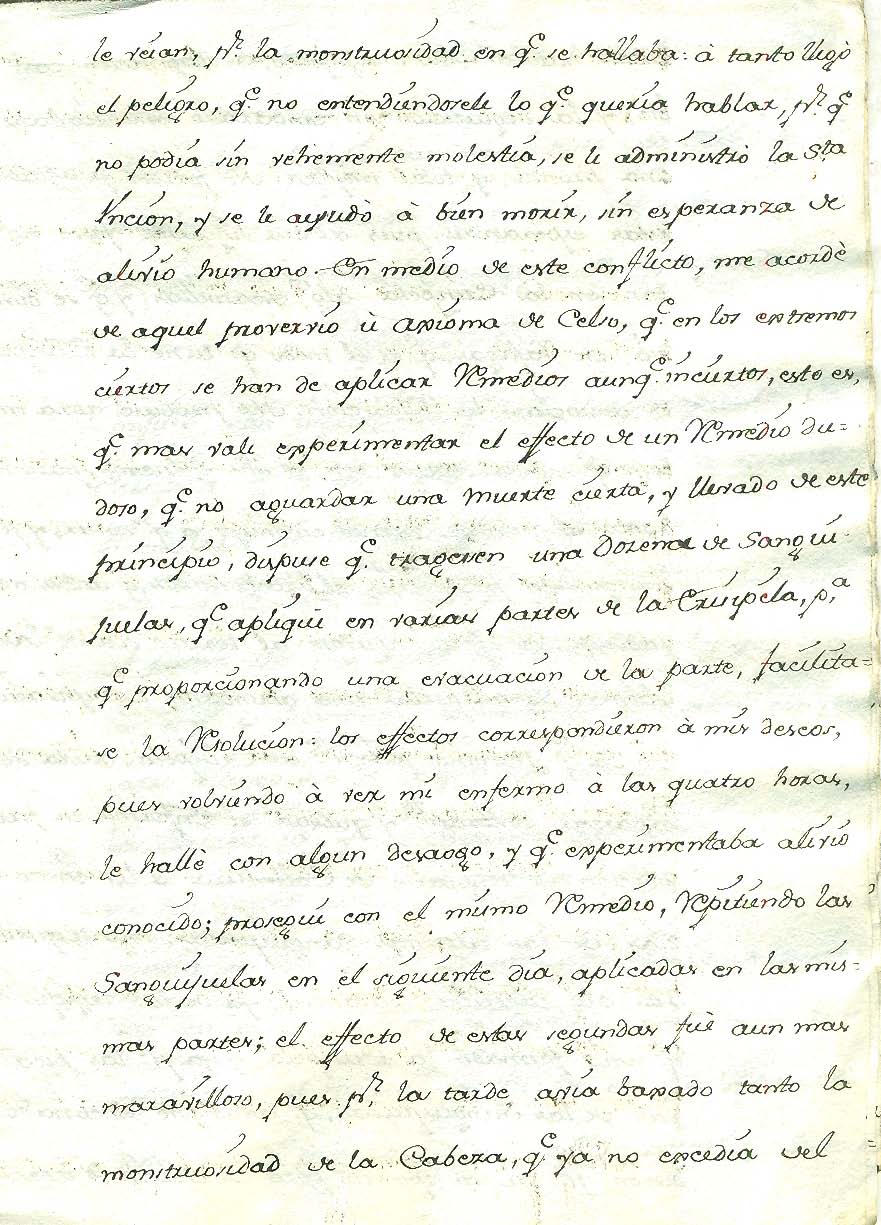 le veían, pr. la monstruosidad en q.e se hallaba: à tanto llegò
el peligro, q.e no entendiendosele lo q.e queria hablar, pr. q.e
no podia sin vehemente molestia, se le administrò la Sta
Vncion, y se le ayudò à bien morir, sin esperanza de
alivio humano. En medio de este conflicto, me acordè
de aquel proverbio ù axioma de Celso, q.e en los extremos
ciertos se han de aplicar Remedios aunq.e inciertos, esto es,
q.e mas vale experimentar el effecto de un Remedio du=
doso, q.e no aguardar una muerte cierta, y llevado de este
principio, dispuse q.e tragesen una Dozena de Sangui-
juelas, q.e apliquè en varias partes de la Erisipela, p.a
q.e proporcionando una evacuacion de la parte, facilita=
se la Resolucion: los effectos correspondieron à mis deseos,
pues volviendo à ver mi enfermo à las quatro horas,
le hallè con algun desaogo, y q.e experimentaba alivio
conocido; prosegui con el mismo Remedio, Repitiendo las
Sanguijuelas en el siguiente dia, aplicadas en las mis=
mas partes; el effecto de estas segundas fuè aun mas
maravilloso, pues pr. la tarde avia baxado tanto la
monstruosidad de la Cabeza, q.e ya no excedia del